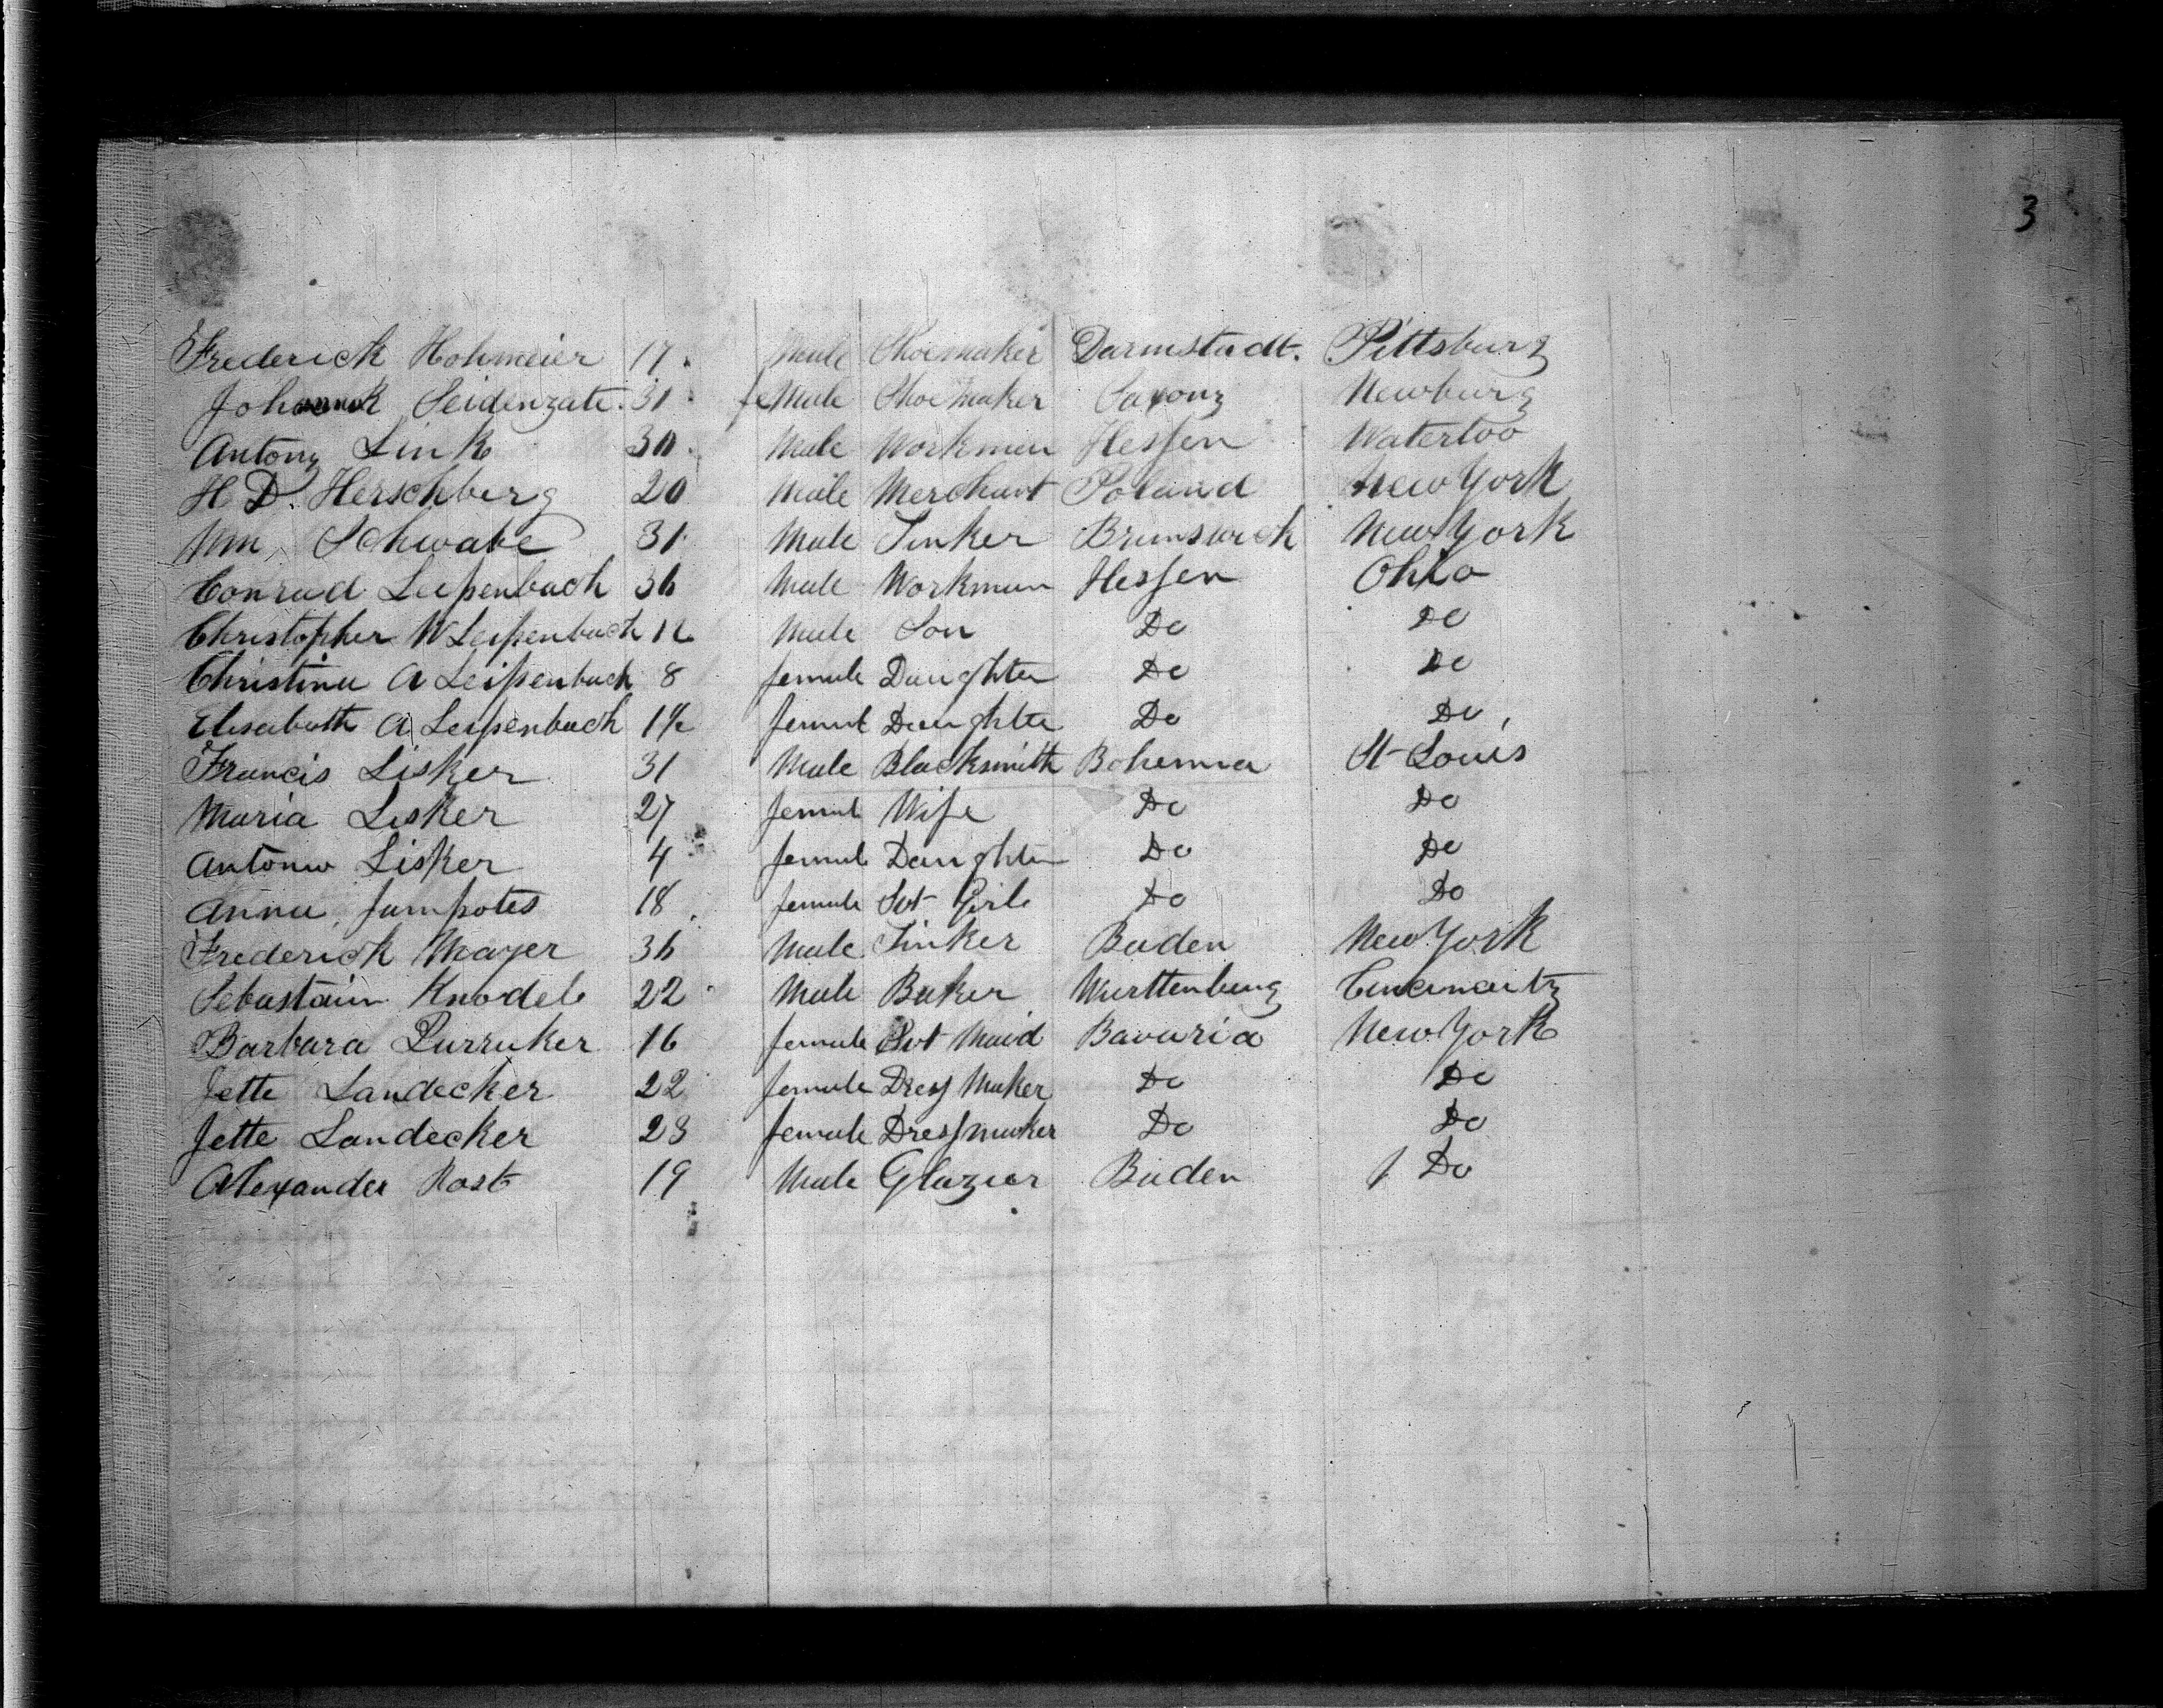 3
Frederick Hohmeier 17. Male Shoemaker Darmstadt. Pittsburg
Seidenzate. 31 feMale Shoe Maker Saxony Newburg
Antony Link 30. Male Workman Hessen Waterloo
H D. Herschberg 20 Male Merchant Poland New York
Wm, Schwabe 31 Male Tinker Brunswick New York
Conrad Leissenbach 36 Male Workman Hessen Ohio
Christopher W Leissenbach Male Son Do Do
Christina A Leissenbach 8 female Daughter Do Do
Elisabeth A Leissenbach 1½ female Daughter Do Do,
Francis Lisker 31 Male Blacksmith Bohemia St Louis
Maria Lisker 27 female Wife Do Do
Lisker 4 female Daughter Do Do
Anna 18 female Svt Girl Do Do
Frederick Mayer 36 Male Tinker Baden New York
Sebastain Knodel 22 Male Baker Wurttenburg
Barbara 16 female Svt Maid Bavaria New York
Jette Landecker 22 female Dress Maker Do Do
Jette Landecker 23 female Dressmaker Do Do
Alexander Rost 19 Male Glazier Baden Do